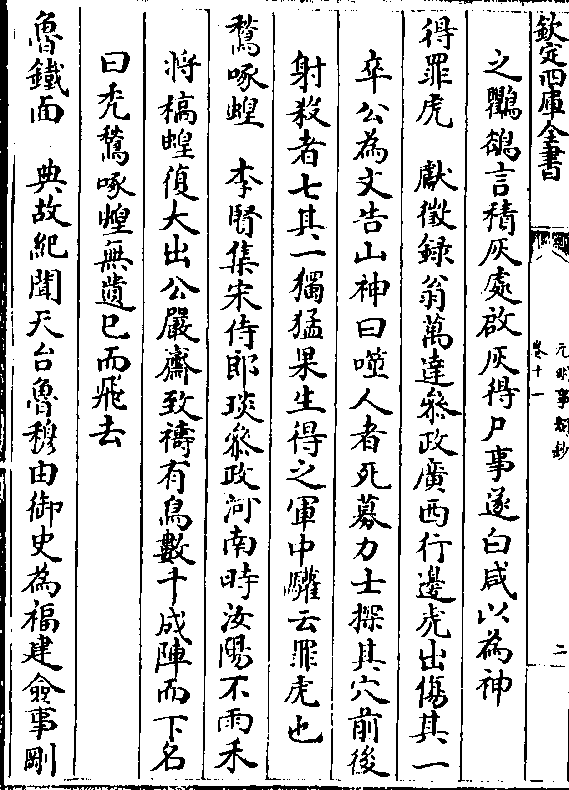 欽定四庫全書
元明事類鈔
卷十一
二
之鸜鵒言積灰處啟灰得尸事遂白咸以為神
得罪虎　獻徵録翁萬達叅政廣西行邊虎出傷其一
卒公為文告山神曰噬人者死募力士探其穴前後
射殺者七其一獨猛果生得之軍中讙云罪虎也
鶖啄蝗　李賢集宋侍郎琰叅政河南時汝陽不雨禾
將槁蝗復大出公嚴齋致禱有鳥數千成陣而下名
曰禿鶖啄蝗無遺已而飛去
魯鐵面　典故紀聞天台魯穆由御史為福建僉事剛